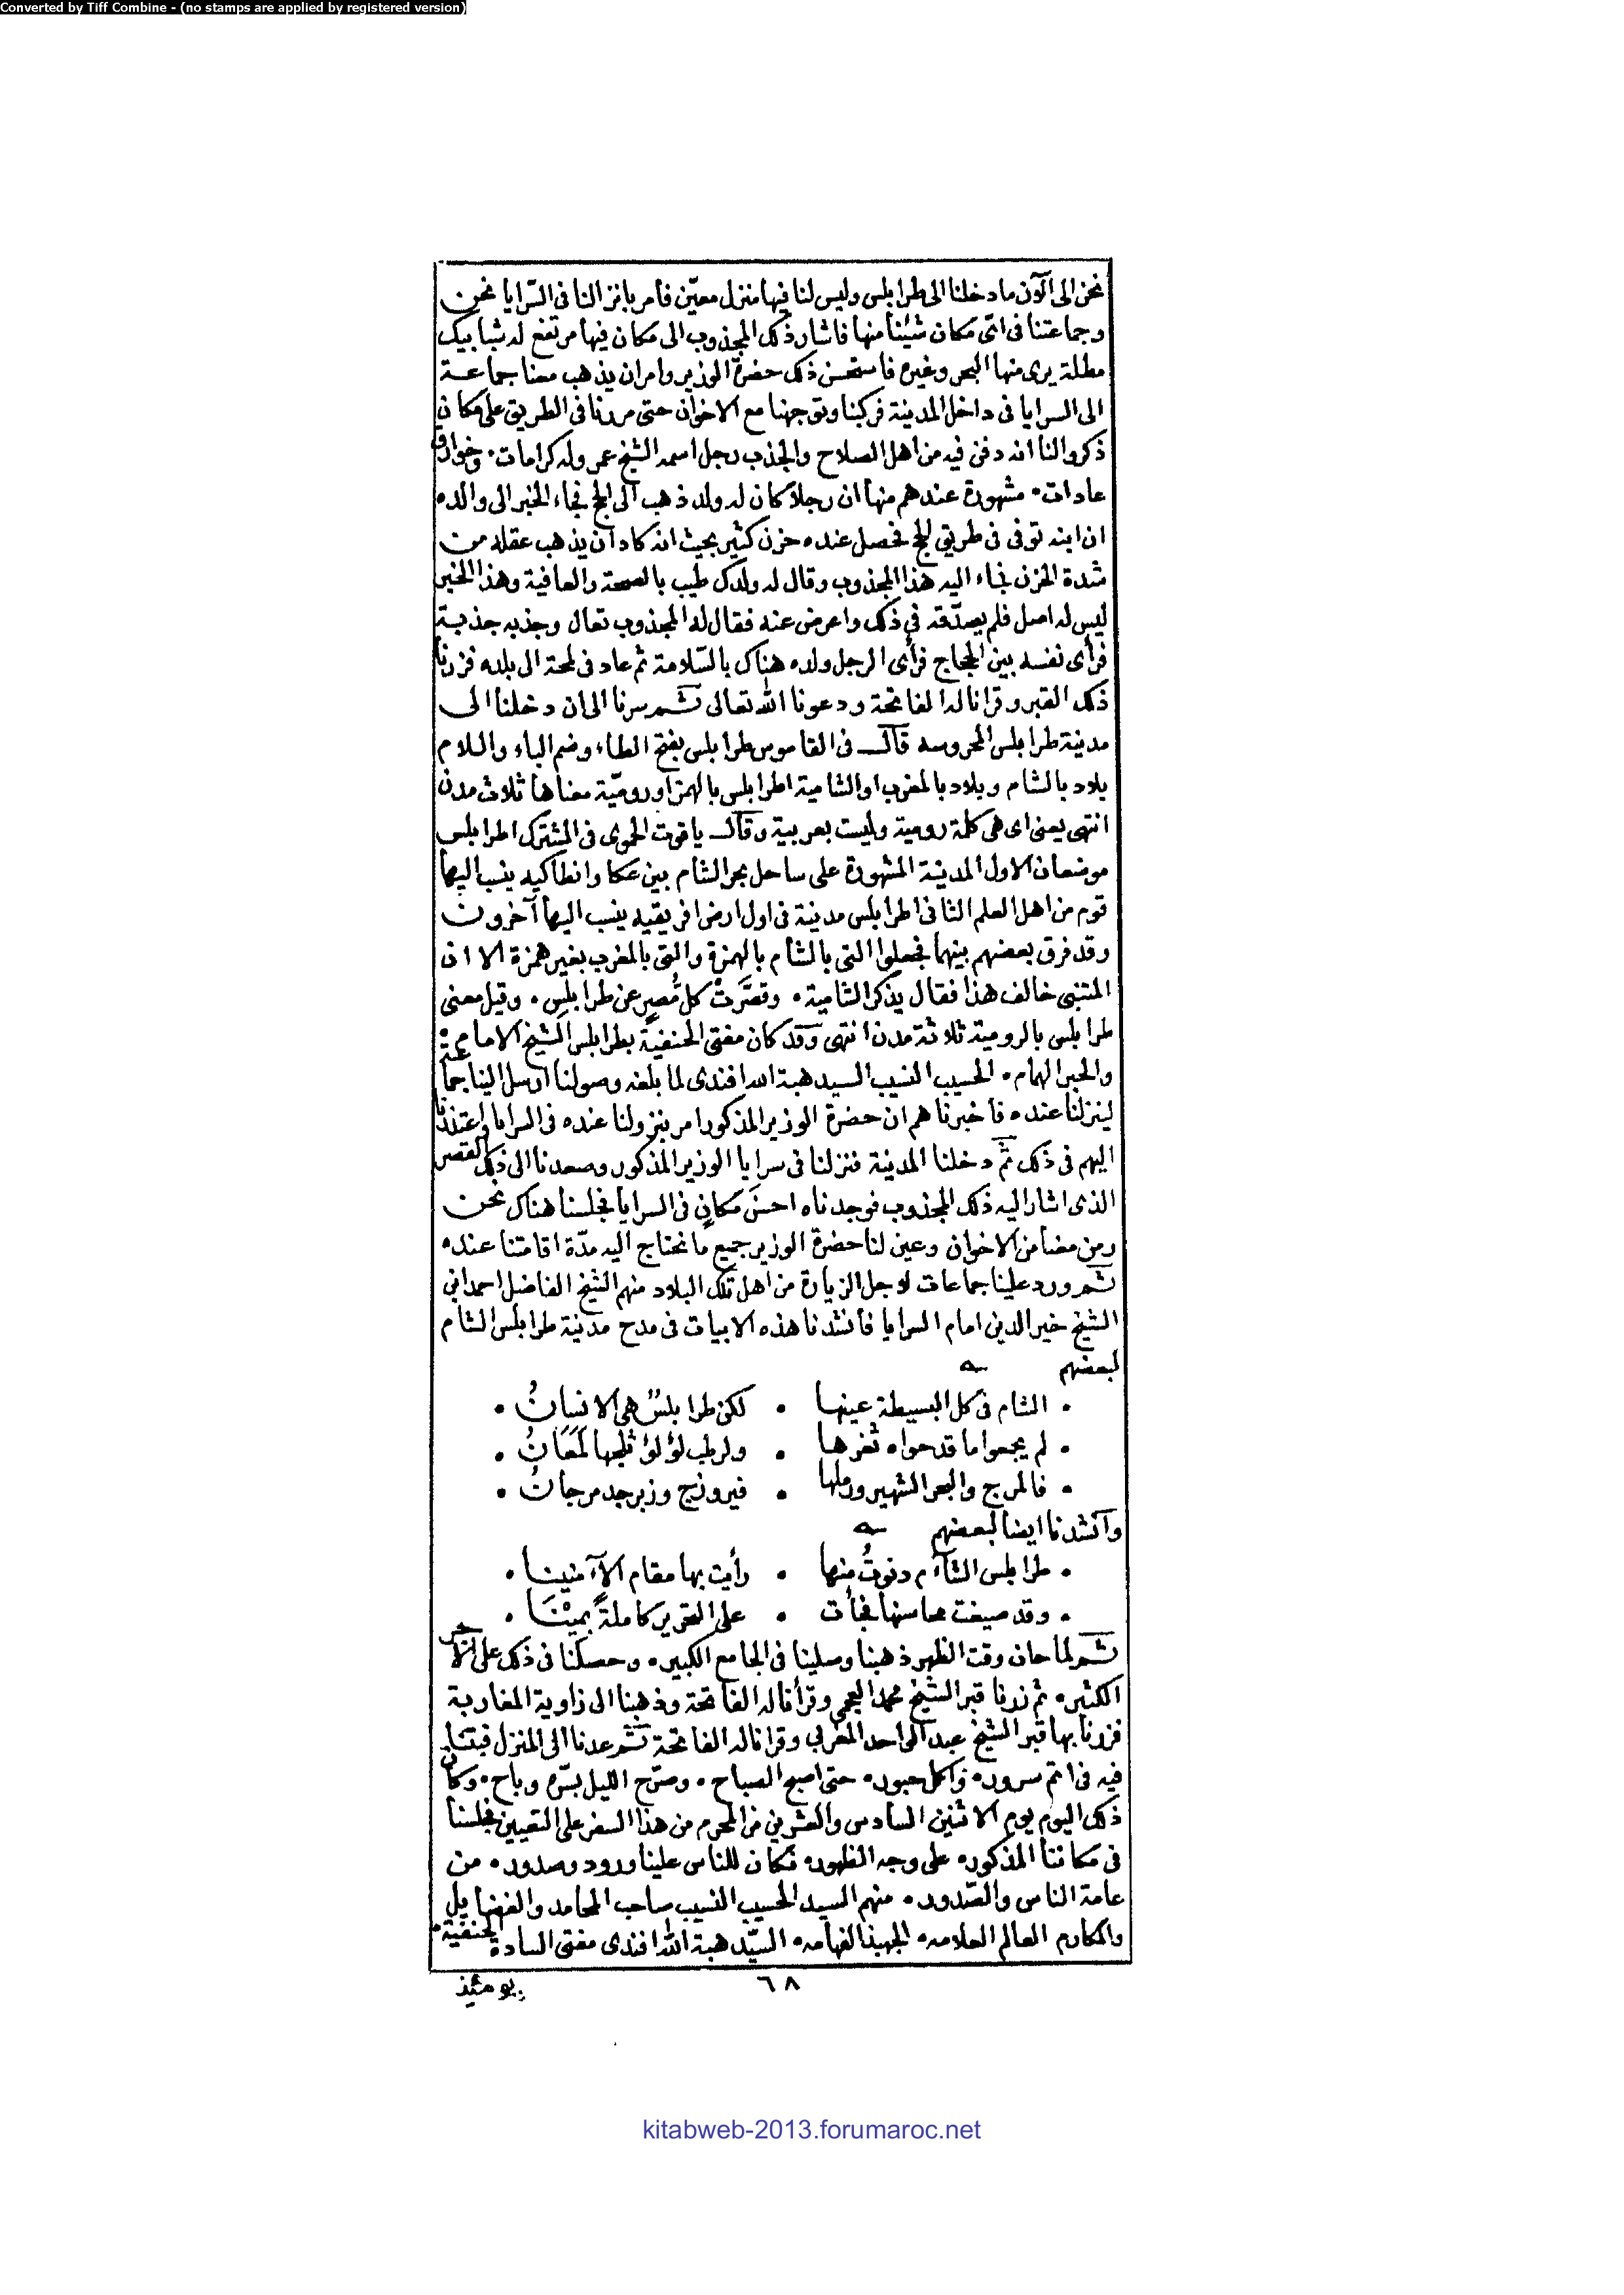 Converted by Tiff Combine - (no stamps are applied by registered version)
نحن الى الآن ما دخلنا الى طرابلس وليس لنا فيها منزل معيّن فامر بانزالنا فى السّرايا نحن
وجماعتنا فى اىّ مكان شئنا منها فاشار ذلك المجذوب الى مكان فيها مرتفع له شبابيك
مطلة يرى منها البحر وغيره فاستحسن ذلك حضرة الوزير وامر ان يذهب معنا جماعة
الى السرايا فى داخل المدينة فركبنا وتوجهنا مع الاخوان حتى مررنا فى الطريق على مكان
ذكروا لنا انه دفن فيه من اهل الصلاح والجذب رجل اسمه الشيخ عمر وله كرامات • وخوارق
عادات • مشهورة عندهم منها ان رجلا كان له ولد ذهب الى الحج فجاء الخبر الى والده
ان ابنه توفى فى طريق الحج فحصل عنده حزن كثير بحيث انه كاد ان يذهب عقله من
شدة الحزن فجاء اليه هذا المجذوب وقال له ولدك طيب بالصحة والعافية وهذا الخبر
ليس له اصل فلم يصدّقه فى ذلك واعرض عنه فقال له المجذوب تعال وجذبه جذبة
فرأى نفسه بين الحجاج فرأى الرجل ولده هناك بالسّلامة ثم عاد فى لمحة الى بلده فزرنا
ذلك القبر وقرانا له الفاتحة ودعونا الله تعالى ثم سرنا الى ان دخلنا الى
مدينة طرابلس المحروسه قال فى القاموس طرابلس بفتح الطاء وضم الباء واللام
بلاد بالشام وبلاد بالمغرب او الشامية اطرابلس بالهمز او روميّة معناها ثلاث مدن
انتهى يعنى اى هى كلمة رومية وليست بعربية وقال ياقوت الحموى فى المشترك اطرابلس
موضعان الاول المدينة المشهورة على ساحل بحر الشام بين عكا وانطاكيه ينسب اليها
قوم من اهل العلم الثانى اطرابلس مدينة فى اول ارض افريقيه ينسب اليها آخرون
وقد فرق بعضهم بينهما فجعلوا التى بالشام بالهمزة والتى بالمغرب بغير همزة الا ان
المتنبى خالف هذا فقال يذكر الشامية • وقصَّرتْ كل مُصرٍ عن طرابلسِ • وقيل معنى
طرابلس بالرومية ثلاثة مدن انتهى وقد كان مفتى الحنفية بطرابلس الشيخ الامام •
والحبر الهمام • الحسيب النسيب السيد هبة الله افندى لما بلغه وصولنا ارسل الينا جماعة
لينزلنا عنده فاخبرناهم ان حضرة الوزير المذكور امر بنزولنا عنده فى السرايا واعتذرنا
اليهم فى ذلك ثمّ دخلنا المدينة فنزلنا فى سرايا الوزير المذكور وصعدنا الى ذلك القصر
الذى اشار اليه ذلك المجذوب فوجدناه احسنَ مكانٍ فى السرايا فجلسنا هناك نحن
ومن معنا من الاخوان وعين لنا حضرة الوزير جميع ما نحتاج اليه مدّة اقامتنا عنده
ثم ورد علينا جماعات لاجل الزيارة من اهل تلك البلاد منهم الشيخ الفاضل احمد ابن
الشيخ خير الدين امام السرايا فانشدنا هذه الابيات فى مدح مدينة طرابلس الشام
لبعضهم
• الشام فى كل البسيطة عينها • لكن طرابلسٌ هى الانسانُ •
• لم يجمعوا ما قد حواه ثغرها • ولرطب لؤلؤ ثلجها لمَعَانُ •
• فالمرج والبحر الشهير ورملها • فيروزج وزبرجد مرجانُ •
وانشدنا ايضا لبعضهم
• طرابلس الشآم دنوتُ منها • رأيت بها مقام الآمنينا •
• وقد صيغت محاسنها فجأت • على التحرير كاملةً بمِيْنَا •
ثم لما حان وقت الظهر ذهبنا وصلينا فى الجامع الكبير • وحصلنا فى ذلك على الاجر
الكثير • ثم زرنا قبر الشيخ محمد العجمى وقرأنا له الفاتحة وذهبنا الى زاوية المغاربة
فزرنا بها قبر الشيخ عبد الواحد المغربى وقرانا له الفاتحة ثم عدنا الى المنزل فبتنا
فيه فى اتم سرور • واكمل حبور • حتى اصبح الصباح • وصرّح الليل بسرّه وباح • وكان
ذلك اليوم يوم الاثنين السادس والعشرين من المحرم من هذا السفر على التعيين فجلسنا
فى مكاننا المذكور • على وجه الظهور • فكان للناس علينا ورود وصدور • من
عامة الناس والصّدور • منهم السيد الحسيب النسيب صاحب المحامد والفضايل
والمكارم العالم العلامه • الجهبذ الفهامه • السيّد هبة الله افندى مفتى السادة الحنفية •
٦٨
يومئذ
kitabweb-2013.forumaroc.net